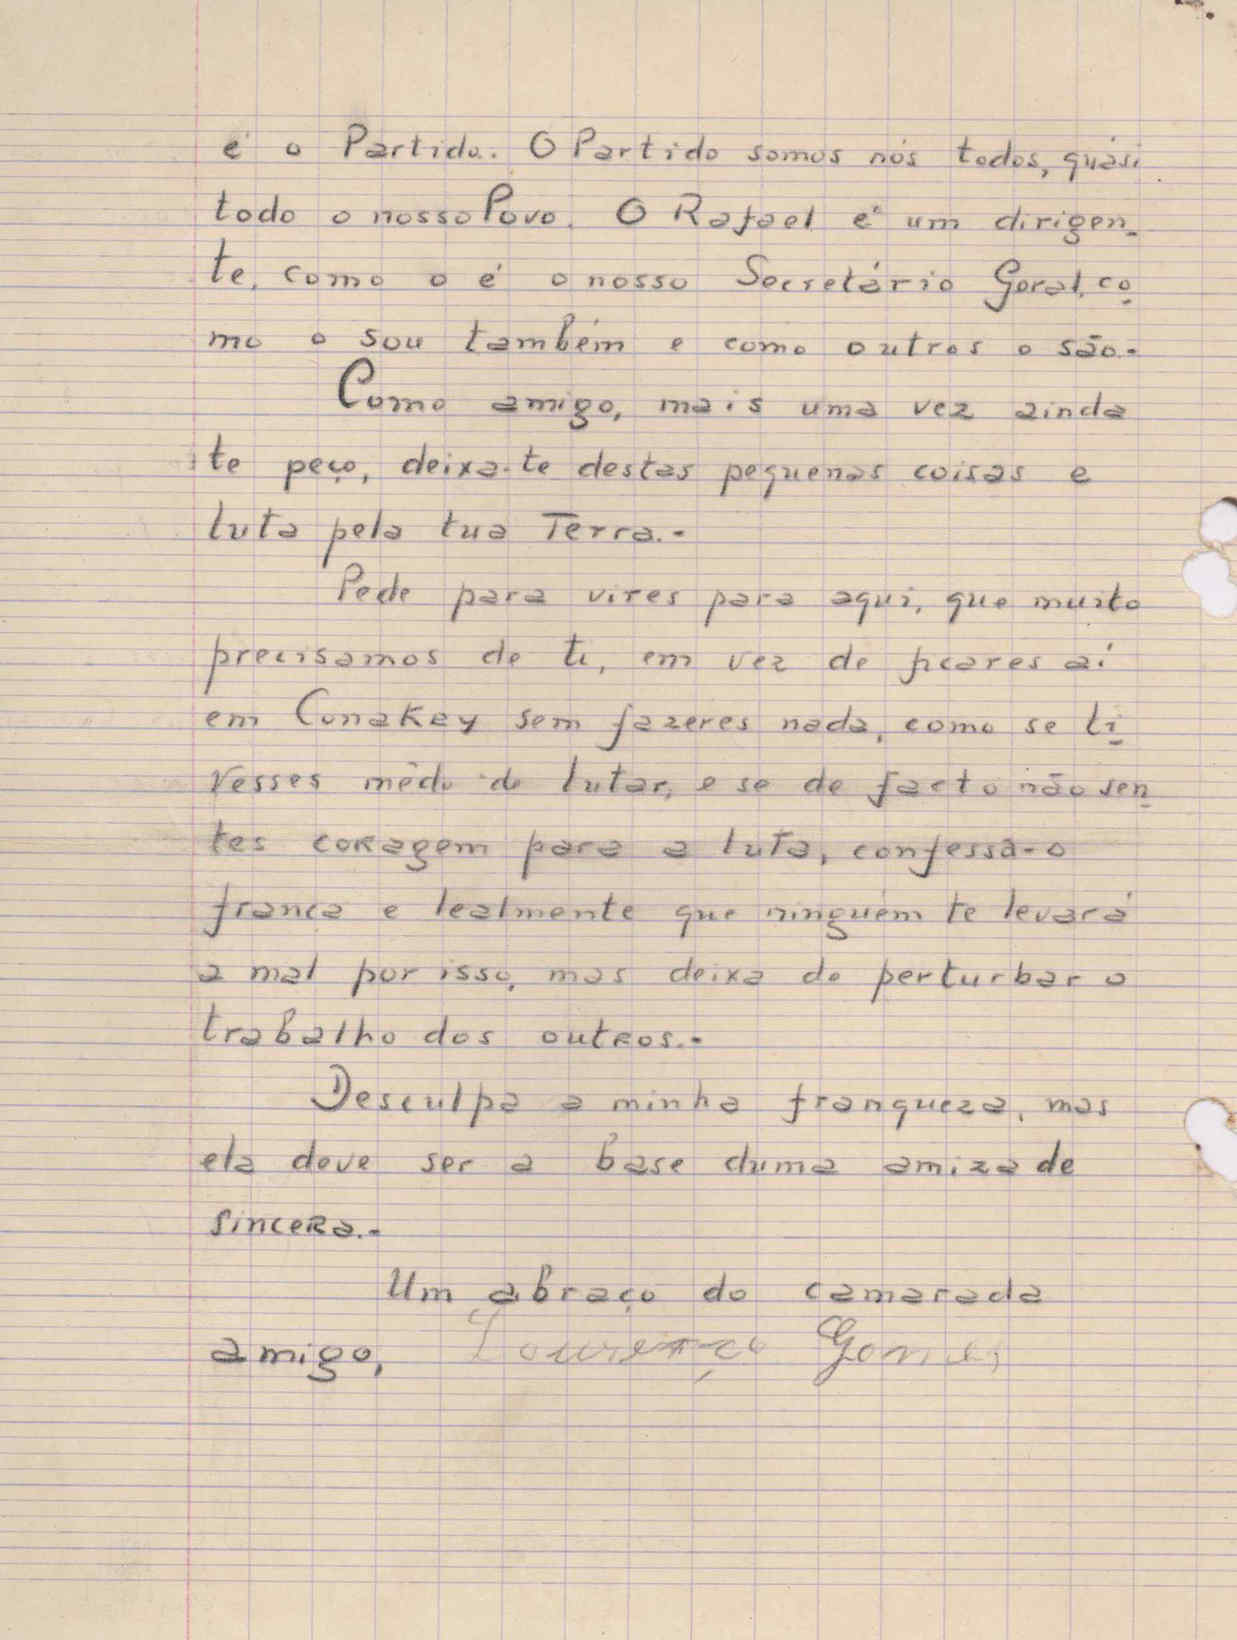 é o Partido. O Partido somos nós todos, quási
todo o nosso Povo. O Rafael é um dirigen-
te, como o é o nosso Secretário Geral, co-
mo o sou também e como outros o são.-
Como amigo, mais uma vez ainda
te peço, deixa-te destas pequenas coisas e
luta pela tua Terra.-
Pede para vires para aqui, que muito
precisamos de ti, em vez de ficares aí
em Conakry sem fazeres nada, como se ti-
vesses mêdo de lutar, e se de facto não sen-
tes coragem para a luta, confessa-o
franca e lealmente que ninguém te levará
a mal por isso, mas deixa de perturbar o
trabalho dos outros.-
Desculpa a minha franqueza, mas
ela deve ser a base duma amizade
sincera.-
Um abraço do camarada
amigo, Lourenço Gomes